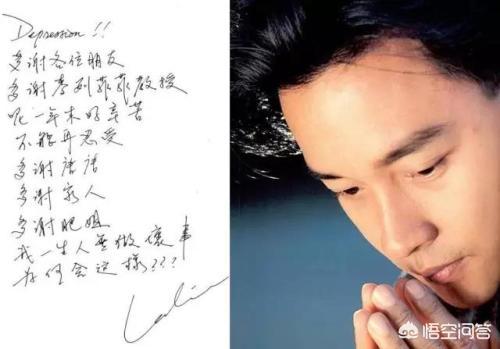 Depression!!
多謝各位朋友
多謝麥列菲菲教授
呢一年來好辛苦
不能再忍受
多謝唐唐
多謝家人
多謝肥姐
我一生人無做壞事
為何會這樣???
Leslie
悟空问答